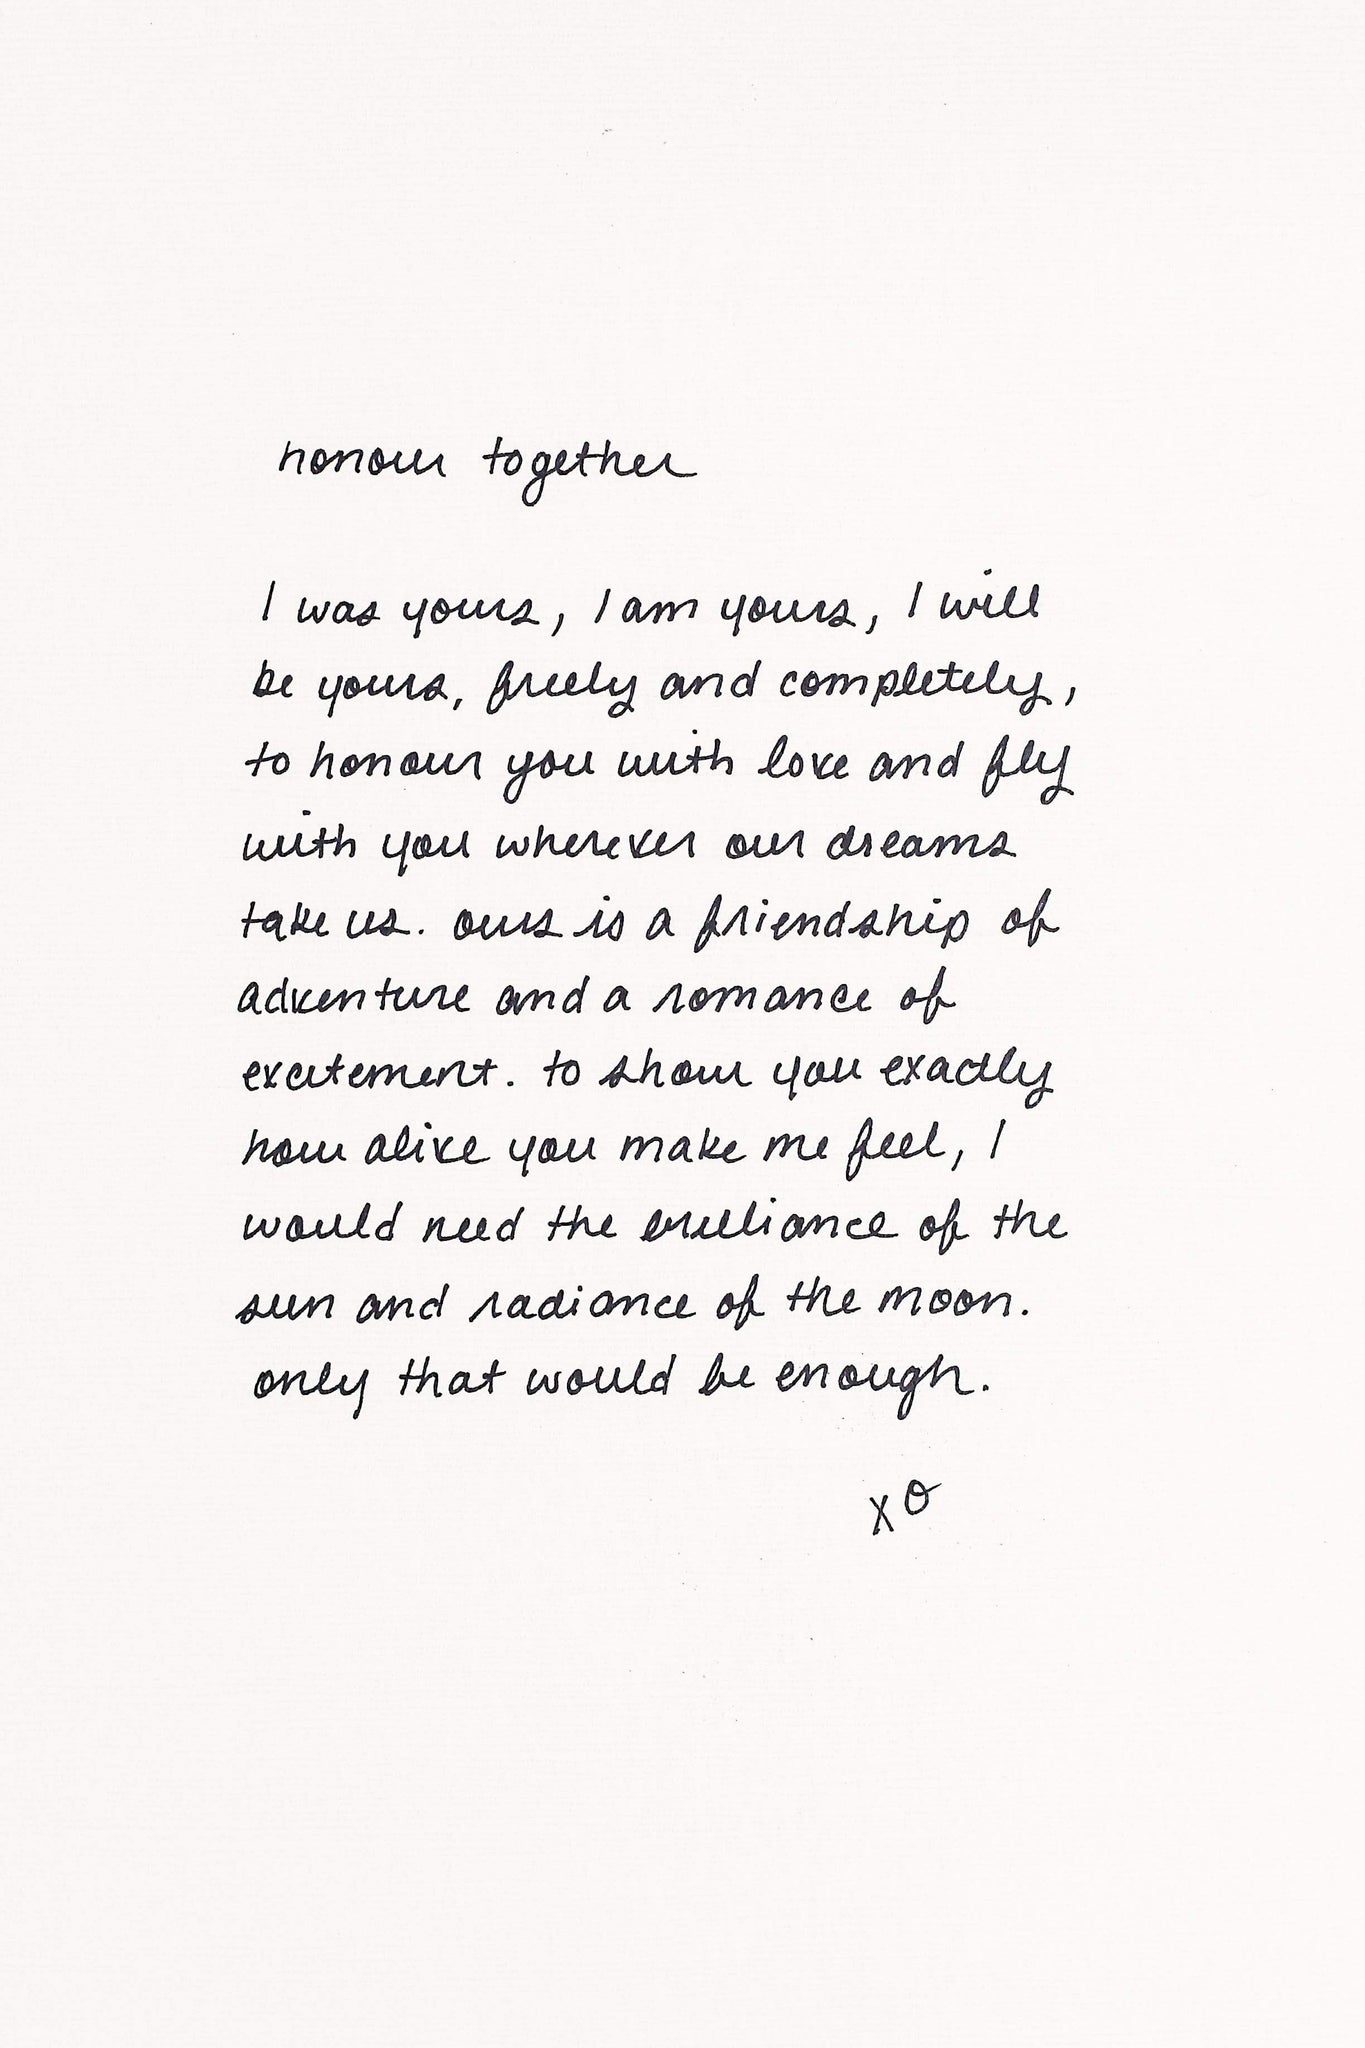 honour together
I was yours, I am yours, I will
be yours, freely and completely,
to honour you with love and fly
with you wherever our dreams
take us. ours is a friendship of
adventure and a romance of
excitement. to show you exactly
how alive you make me feel, I
would need the brilliance of the
sun and radiance of the moon.
only that would be enough.
xo